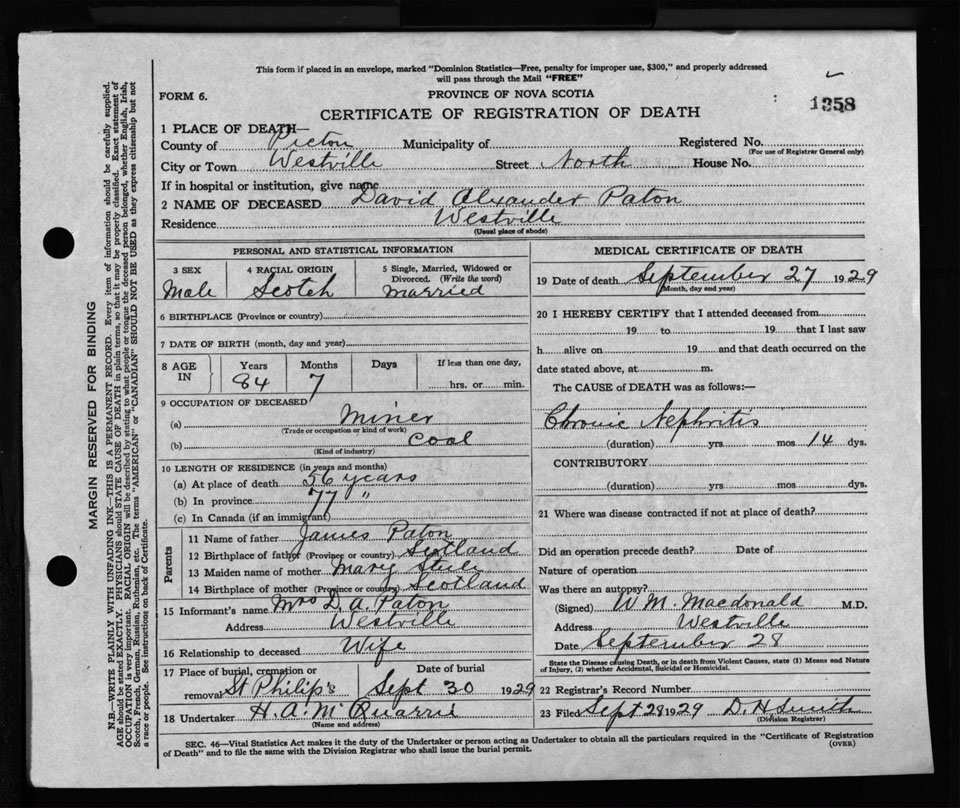 This form if placed in an envelope, marked "Dominion Statistics—Free, penalty for improper use, $300," and properly addressed
will pass through the Mail "FREE"
FORM 6.
PROVINCE OF NOVA SCOTIA
1358
CERTIFICATE OF REGISTRATION OF DEATH
1 PLACE OF DEATH—
County of Pictou Municipality of Registered No.
(For use of Registrar General only)
City or Town Westville Street North House No.
If in hospital or institution, give name
2 NAME OF DECEASED David Alexander Paton
Residence Westville
(Usual place of abode)
PERSONAL AND STATISTICAL INFORMATION
3 SEX 4 RACIAL ORIGIN 5 Single, Married, Widowed or
Divorced. (Write the word)
Male Scotch Married
6 BIRTHPLACE (Province or country)
7 DATE OF BIRTH (month, day and year)
8 AGE IN Years Months Days If less than one day,
84 7 hrs. or min.
9 OCCUPATION OF DECEASED
(a) Miner
(Trade or occupation or kind of work)
(b) Coal
(Kind of industry)
10 LENGTH OF RESIDENCE (in years and months)
(a) At place of death 56 years
(b) In province 77 "
(c) In Canada (if an immigrant)
Parents
11 Name of father James Paton
12 Birthplace of father (Province or country) Scotland
13 Maiden name of mother Mary
14 Birthplace of mother (Province or country) Scotland
15 Informant's name Mrs D. A. Paton
Address Westville
16 Relationship to deceased Wife
17 Place of burial, cremation or Date of burial
removal St Philip's Sept 30 1929
18 Undertaker H. A. McQuarrie
(Name and address)
MEDICAL CERTIFICATE OF DEATH
19 Date of death September 27 1929
(Month, day and year)
20 I HEREBY CERTIFY that I attended deceased from
19 to 19 that I last saw
h alive on 19 and that death occurred on the
date stated above, at m.
The CAUSE of DEATH was as follows:—
Chronic Nephritis
(duration) yrs mos 14 dys.
CONTRIBUTORY
(duration) yrs mos dys.
21 Where was disease contracted if not at place of death?
Did an operation precede death? Date of
Nature of operation
Was there an autopsy?
(Signed) W M. Macdonald M.D.
Address Westville
Date September 28
State the Disease causing Death, or in death from Violent Causes, state (1) Means and Nature
of Injury, (2) whether Accidental, Suicidal or Homicidal.
22 Registrar's Record Number
23 Filed Sept 28 1929 D. H Smith
(Division Registrar)
SEC. 46—Vital Statistics Act makes it the duty of the Undertaker or person acting as Undertaker to obtain all the particulars required in the "Certificate of Registration
of Death" and to file the same with the Division Registrar who shall issue the burial permit.
(OVER)
MARGIN RESERVED FOR BINDING
N.B.—WRITE PLAINLY WITH UNFADING INK—THIS IS A PERMANENT RECORD. Every item of information should be carefully supplied.
AGE should be stated EXACTLY. PHYSICIANS should STATE CAUSE OF DEATH in plain terms, so that it may be properly classified. Exact statement of
OCCUPATION is very important. RACIAL ORIGIN will be described by stating to what people or tongue the deceased person belonged, whether English, Irish,
Scotch, French, German, Russian, Ruthenian, etc. The terms "AMERICAN" or "CANADIAN" SHOULD NOT BE USED as they express citizenship but not
a race or people. See instructions on back of Certificate.